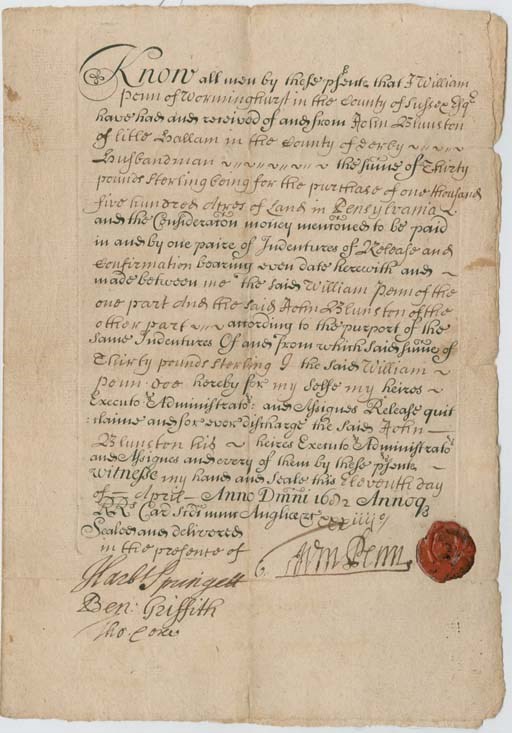 Know all men by these psents that I William
Penn of Worminghurst in the County of Sussex Esqr
have had and received of and from John Blunston
of litle Hallam in the County of Derby
Husbandman the sume of Thirty
pounds sterling being for the purchase of one thousand
five hundred Acres of Land in Pensylvania
and the Consideraton money mentoned to be paid
in and by one paire of Indentures of Release and
Confirmation bearing even date herewith and ~
made between me the said William Penn of the
one part And the said John Blunston of the
other part according to the purport of the
same Indentures Of and from which said sume of
Thirty pounds sterling I the said William ~
Penn doe hereby for my selfe my heires ~
Executors Administrators and Assignes Release quit
claime and for ever discharge the said John —
Blunston his ~ heires Executors Administrators
and Assignes and every of them by these psents ~
Witnesse my hand and Seale this Eleventh day
of — April — Anno Dmni 1682 Annoq
RRs Car Secundi Angliae &c xxxiiiij
Sealed and delivered
in the presence of
Wm Penn
Harb Springett
Ben: Griffith
Tho: Coxe